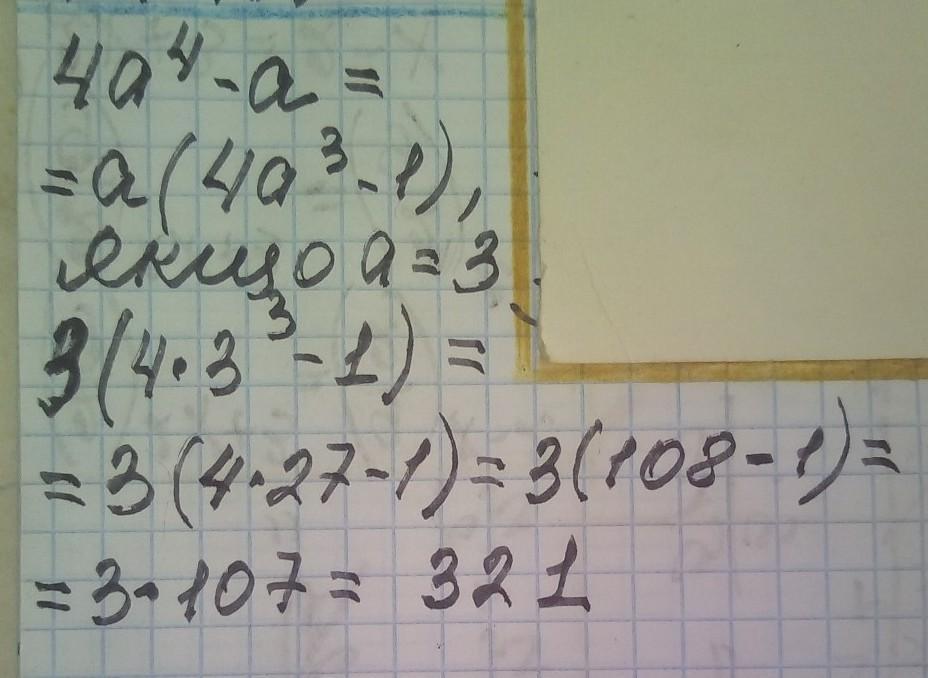 4a⁴ - a =
= a(4a³ - 1),
якщо a = 3,
3(4·3³ - 1) =
= 3(4·27 - 1) = 3(108 - 1) =
= 3·107 = 321